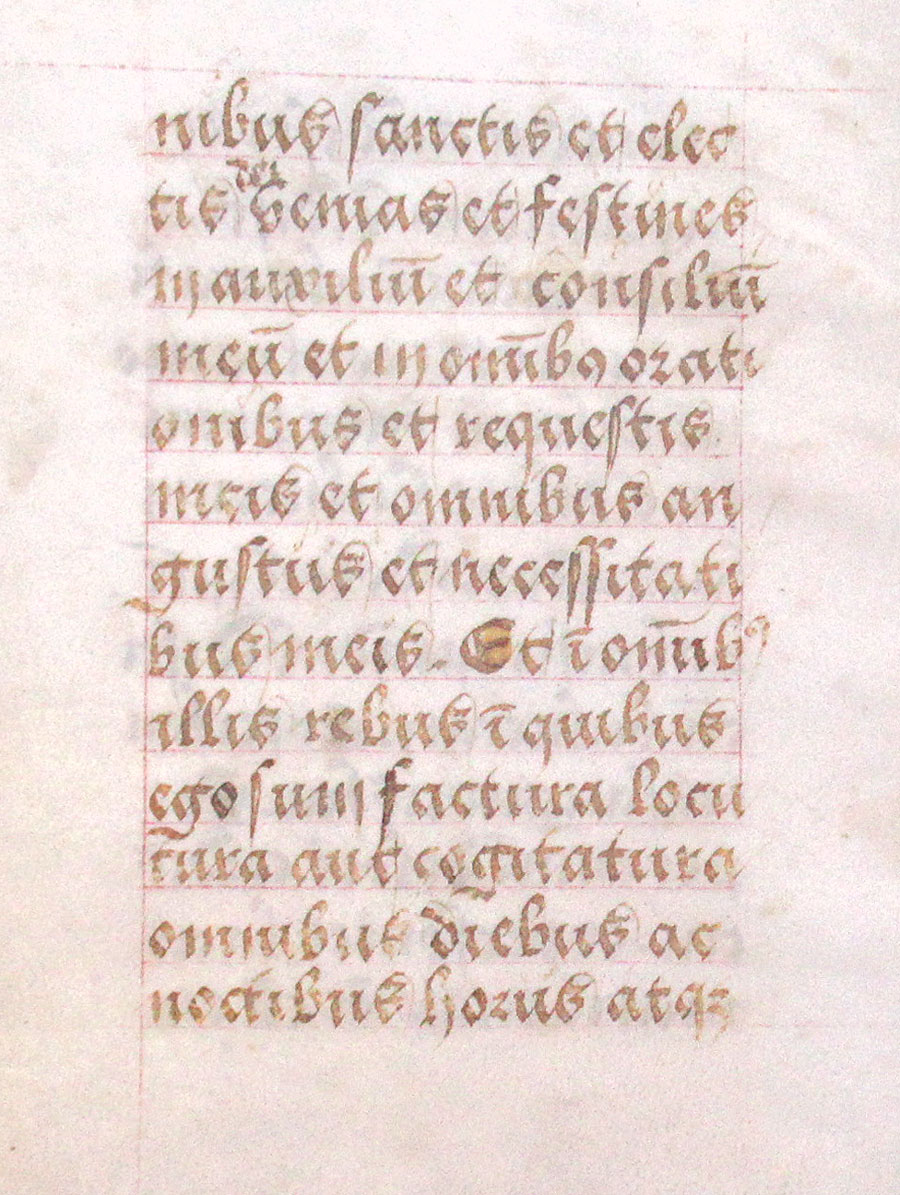 nibus sanctis et elec
dei
tis Venias et festines
in auxiliū et consiliūm
meū et in om̄ibꝯ orati
onibus et requestis
meis et omnibus an
gustiis et necessitati
bus meis. Et ī om̄ibꝰ
illis rebus ī quibus
ego sum factura locu
tura aut cogitatura
omnibus diebus ac
noctibus horis atqꝫ